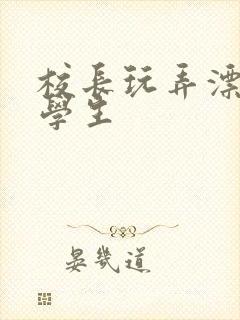 校長玩弄漂
學生
晏幾道